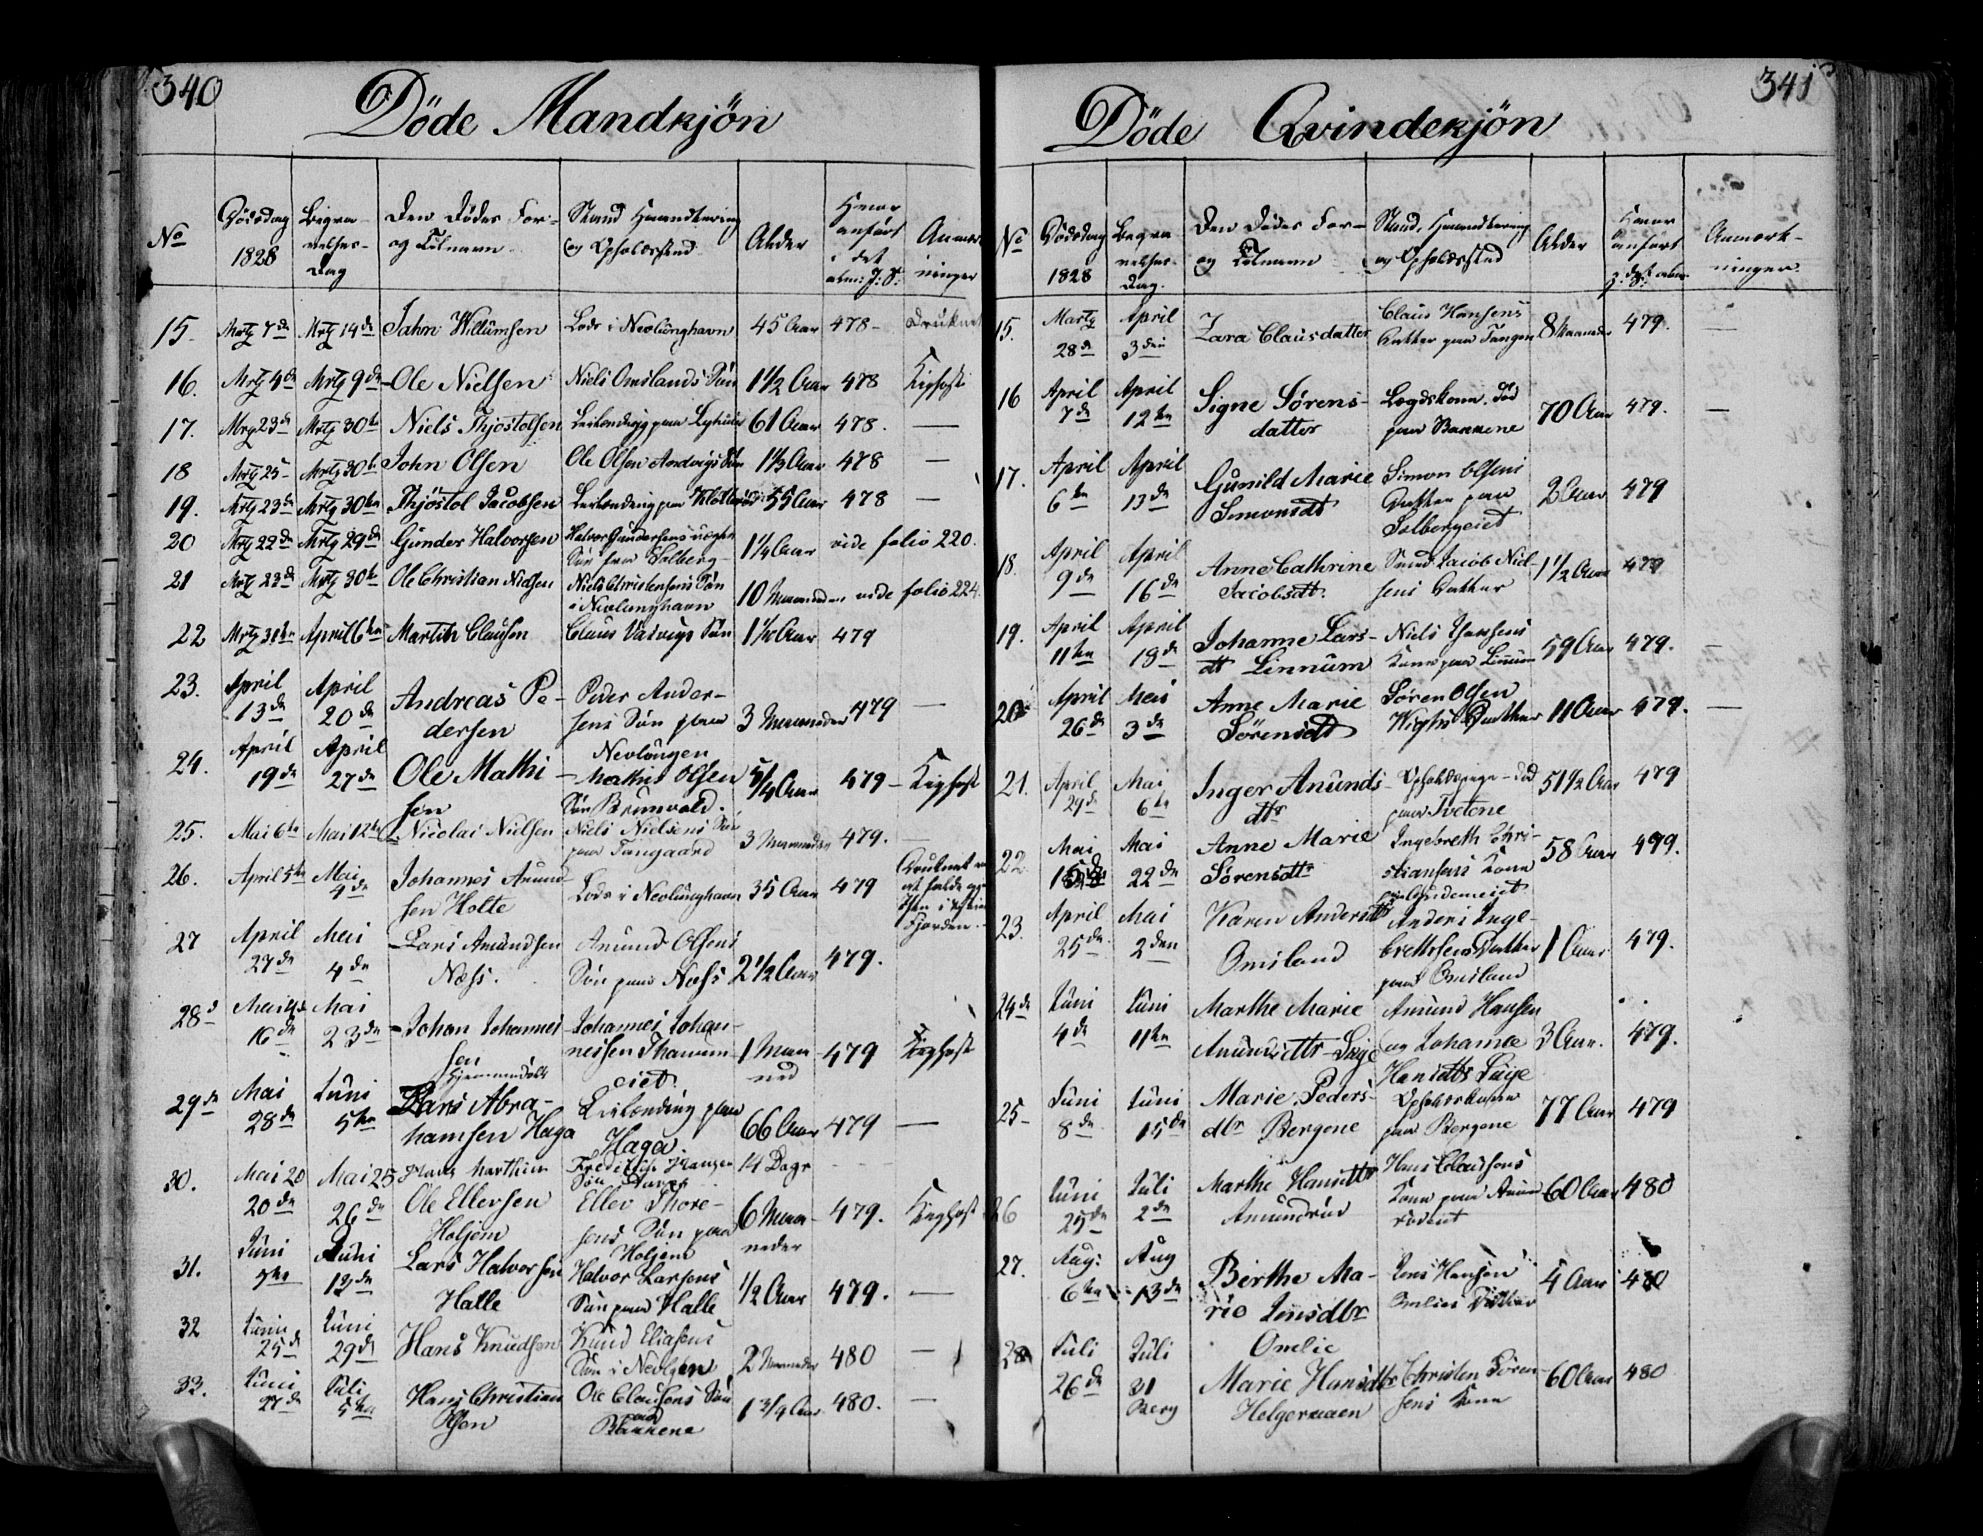 340
Döde Mandkjön
No
Dödsdag 1828
Begravelses-Dag
Den Dödes For- og Tilnavn
Stand Haandtering og Opholdssted
Alder
Hvor anført i det alm: J: R:
Anmærkninger
15 Mrtz 7de Mrtz 14de Jahn Willumsen Lods i Nevlunghavn 45 Aar 478 Druknet
16. Mrtz 4de Mrtz 9de Ole Nielsen Niels Omslands Sön 1 1/2 Aar 478 Kighoste
17. Mrtz 23de Mrtz 30te Niels Thjostolsen 61 Aar 478. —
18 Mrtz 25 Mrtz 30te John Olsen Ole Olsen Sön 1 1/3 Aar 478 —
19. Mrtz 23de Mrtz 30te Thjöstol Jacobsen Leilænding paa 55 Aar 478 —
20 Mrtz 22de Mrtz 29de Gunder Halvorsen Halvor Gundersens Sön fra Solberg 1 1/4 Aar vide folio 220.
21 Mrtz 23de Mrtz 30te Ole Christian Nielsen Niels Christensens Sön i Nevlunghavn 10 Maaneder vide folio 224.
22 Mrtz 31te April 6te Martin Clausen Claus Sön 479
23. April 13de April 20de Andreas Pedersen Peder Andersens Sön paa Nevlungen 3 Maaneder 479 —
24. April 19de April 27de Ole Mathisen Mathis Olsen Sön Brunvald. 5/4 Aar 479 Kighoste
25. Mai 6te Mai 12te Nicolai Nielsen Niels Nielsens Sön paa Fangaard 3 Maaneder 479. —
26. April 5te Mai 4de Johannes Anundsen Holte Lods i Nevlunghavn 35 Aar 479 Druknet Fjorden
27 April 27de Mai 4de Lars Amundsen Næss. Anund Olsens Sön paa Næss 2 1/2 Aar 479.
28d Mai 16de Mai 23de Johan Johannessen Johannes Johannessen eiet. 1 Maaned 479 Kighoste
29de Mai 28de Juni 5te Lars Abrahamsen Haga Leilænding paa Haga 66 Aar 479 —
30. Mai 20 Mai 25 Hans Marthin Frederich Hansen Sön 14 Dage
20de 26de Ole Ellevsen Holjem Ellev Thoresens Sön paa Holjem 6 Maaneder 479. Kighoste
31. Juni Juni 13de Lars Halvorsen Halle Halvor Larsens Sön paa Halle 1/2 Aar 479. —
32 Juni 25de Juni 29de Hans Knudsen Knud Eliasens Sön i Nevlgen 2 Maaneder 480 —
33. Juni 27de Juli 5te Hans Christian Olsen Ole Clausens Sön paa Bakkene 1 3/4 Aar 480. —
341
Döde Qvindekjön
No
Dödsdag 1828
Begravelses-Dag.
Den Dödes For- og Tilnavn
Stand, Haandtering og Opholdssted
Alder
Hvor anført i det alm. J: R:
Anmærkninger.
15. Martz 28de April 3die Zara Clausdatter Claus Hansens Datter paa Tangen 8 Maaneder 479. —
16 April 7de April 12te Signe Sørensdatter Lægdskone, død paa Bakkene 70 Aar 479. —
17. April 6te April 13de Gunild Marie Simonsdt Simon Olsens Datter paa Solbergeiet 2 Aar 479
18. April 9de April 16de Anne Cathrine Jacobsdt. Smed Jacob Nielsens Datter 1 1/2 Aar 479
19. April 11te April 18de Johanne Larsdt Linnum Niels Kone paa Linnum 59 Aar 479.
20 April 26de Mai 3de Anne Marie Sörensdt Søren Olsen Datter 11 Aar 479. —
21. April 29de Mai 6te Inger Anundsdtr Opholdspige død paa Tvetene 51 1/2 Aar 479
22. Mai Mai 22de Anne Marie Sörensdtr Ingebreth Christiansens Kone 58 Aar 479.
23. April 25de Mai 2den Karen Andersdtr Omsland Anders Ingebrethsens Datter paa Omsland 1 Aar 479.
24de Juni 4de Juni 11te Marthe Marie Amundsdtr Amund Hansen og Johanne Hansdtr 3 Aar. 479.
25 Juni 8de Juni 15de Marie Pedersdtr Bergene Opholdskone paa Bergene 77 Aar 479
26 Juni 25de Juli 2de Marthe Hansdtr Amundröd Hans Clausens Kone paa 60 Aar 480
27. Aug: 6te Aug 13de Birthe Marie Jensdtr Omlie Jens Hansen Omlies Datter 4 Aar 480
28 Juli 26de Juli 31 Berg Marie Hansdtr Helgeroaen Christen Sörensens Kone 60 Aar 480